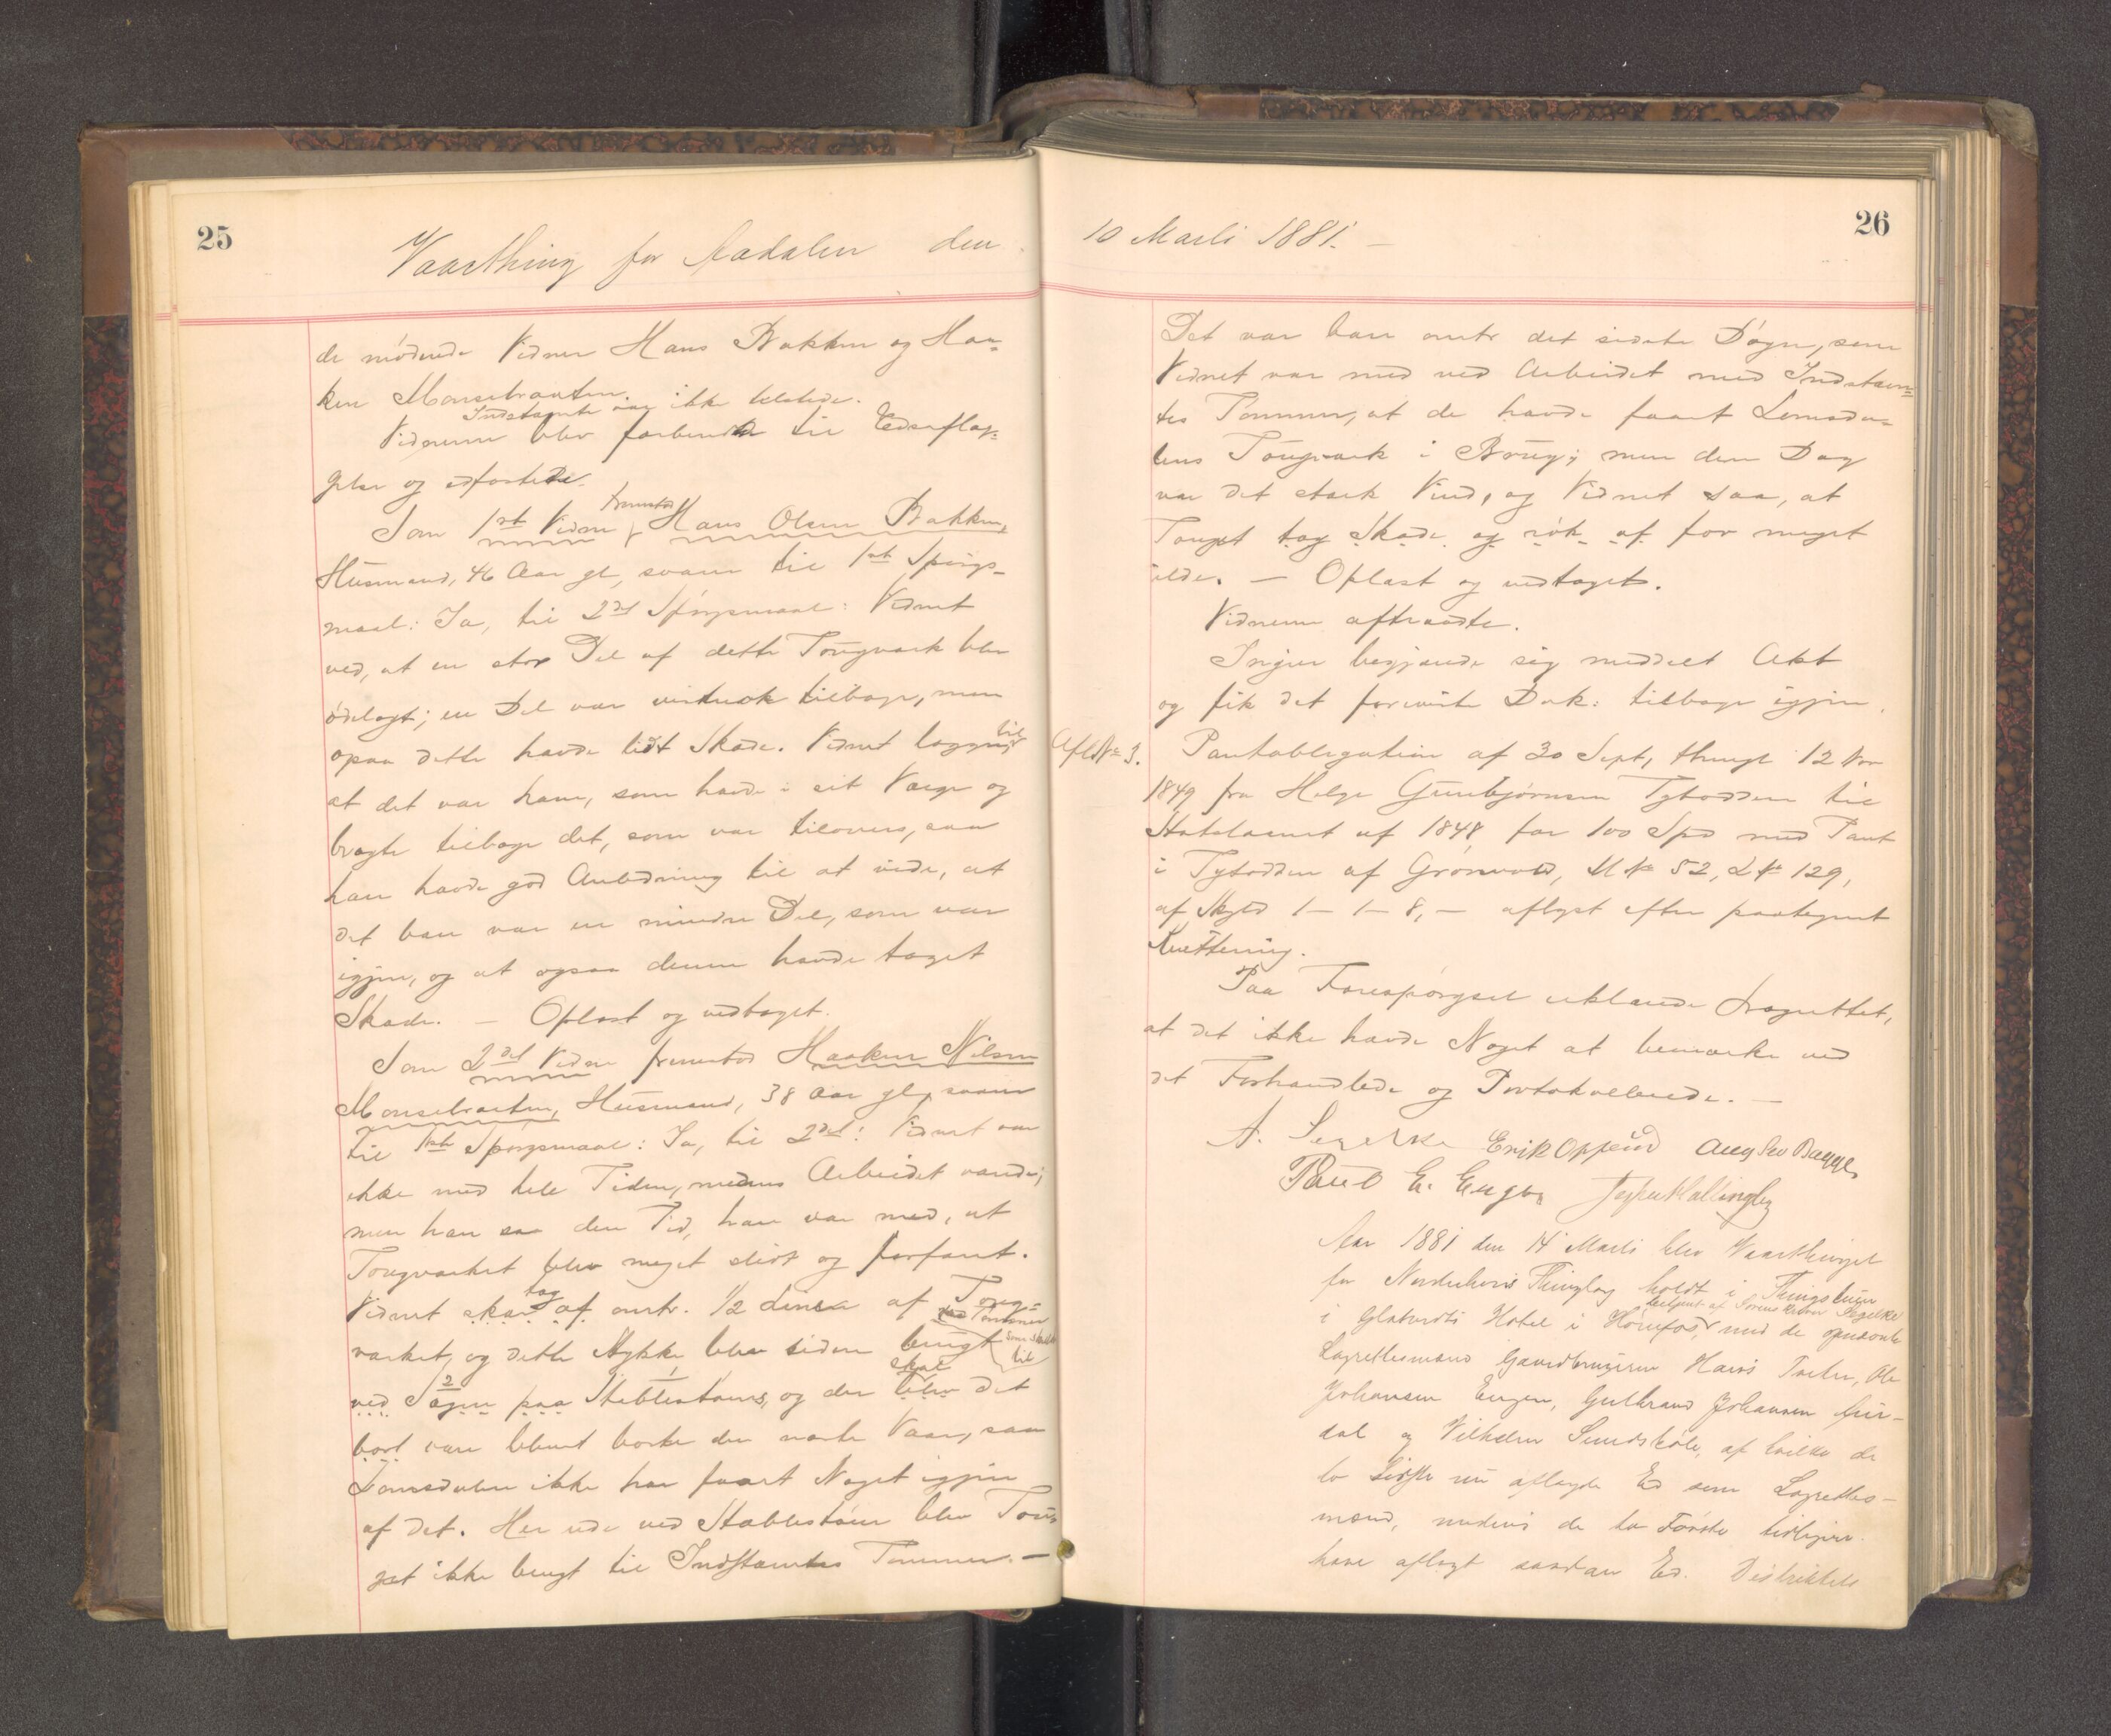 25
Vaarthing for Aadalen den
de mødende Vidner Hans Bakken og Haa-
ken Monsebraaten. Indstævnte var ikke tilstede.
Vidnerne blev forberedte til Edsaflæg-
gelse og edfæstede.
Som 1ste Vidne fremstod Hans Olsen Bakken,
Husmand, 46 Aar gl, svarer til 1ste Spørgs-
maal: Ja, til 2det Spørgsmaal: Vidnet
ved, at en stor Del af dette Tougværk blev
ødelagt; en Del var vistnok tilbage, men
ogsaa dette havde lidt Skade. Vidnet lægger til
at det var ham, som havde i sit Værge og
bragte tilbage det, som var tilovers, saa
han havde god Anledning til at vide, at
det bare var en mindre Del, som var
igjen, og at ogsaa denne havde taget
Skade. — Oplæst og vedtaget.
Som 2det Vidne fremstod Haaken Nilsen
Monsebraaten, Husmand, 38 Aar gl, svarer
til 1ste Spørgsmaal: Ja, til 2det: Vidnet var
ikke med hele Tiden, medens Arbeidet varede;
men han saa den Tid, han var med, at
Tougværket blev meget slidt og forfaret.
Vidnet skar tog af omtr. 1/2 af Toug-
værket, og dette Stykke blev siden brugt
ved Sagen paa Stablestøens, og der skal blev det
bort være blevet borte den næste Vaar, saa
Lomsdalen ikke har faaet Noget igjen
af det. Her ude ved Stablestøen blev Tou-
get ikke brugt til Indstævntes Tømmer. —
26
10 Marts 1881. —
Det var bare omtr det sidste Døgn, som
Vidnet var med ved Arbeidet med Indstævn-
tes Tømmer, at de havde faaet Lomsda-
lens Tougværk i Brug; men den Dag
var det stærk Vind, og Vidnet saa, at
Touget tog Skade og røk af for meget
ilde. — Oplæst og vedtaget.
Vidnerne aftraadte.
Ingier begjærede sig meddelt Akt
og fik det foreviste Dok: tilbage igjen.
Afl № 3. Pantobligation af 30 Sept, thingl 12 Nov
1849 fra Helge Gunbjørnsen Tytodden til
Statslaanet af 1848, for 100 Spd med Pant
i Tytodden af Grønvold, M № 52, L № 129,
af Skyld 1 — 1 — 8, — aflyst efter paategnet
Kvittering.
Paa Forespørgsel erklærede Lagrettet,
at det ikke havde Noget at bemærke ved
det Forhandlede og Protokollerede. —
A. Segelcke Erik Oppeud
Paul E. Engen
Aar 1881 den 14 Marts blev Vaarthinget
for Norderhovs Thinglag holdt i Thingstuen
i Glatvedts Hotel i Hønefos, betjent af Sorenskriver Segelcke med de opnævnte
Lagrettesmænd Gaardbrugerne Hans Tveter, Ole
Johansen Engen, Gulbrand Johansen
og Vilhelm Sundstole, af hvilke de
to Sidste nu aflagde Ed som Lagrettes-
mænd, medens de to Første tidligere
have aflagt saadan Ed. Distriktets